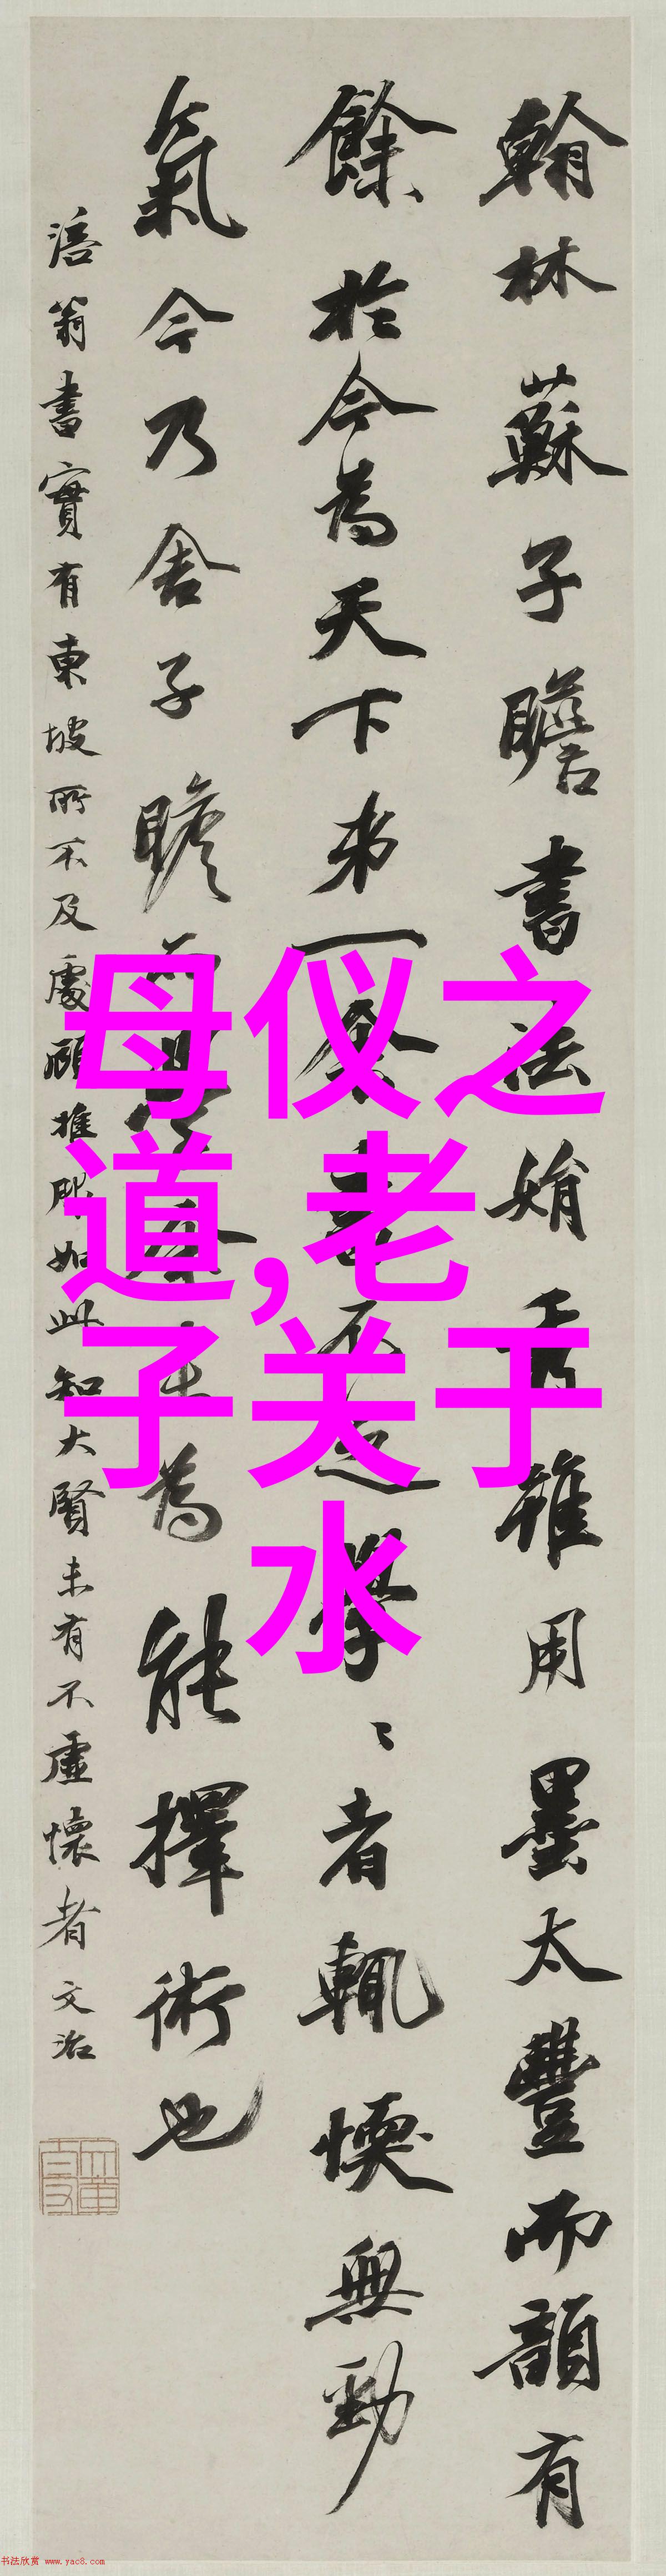 翰林蘇子瞻書法娟秀雖用墨太豐而韻有
餘於今為天下第一余書不足學〻者輒愞無勁
氣今乃舍子瞻而學余未為能擇術也
涪翁書實有東坡所不及處顧推服如此知大賢未有不虛懷者 文治
母仪之
道,老
子关于
水
书法欣赏 www.yac8.com